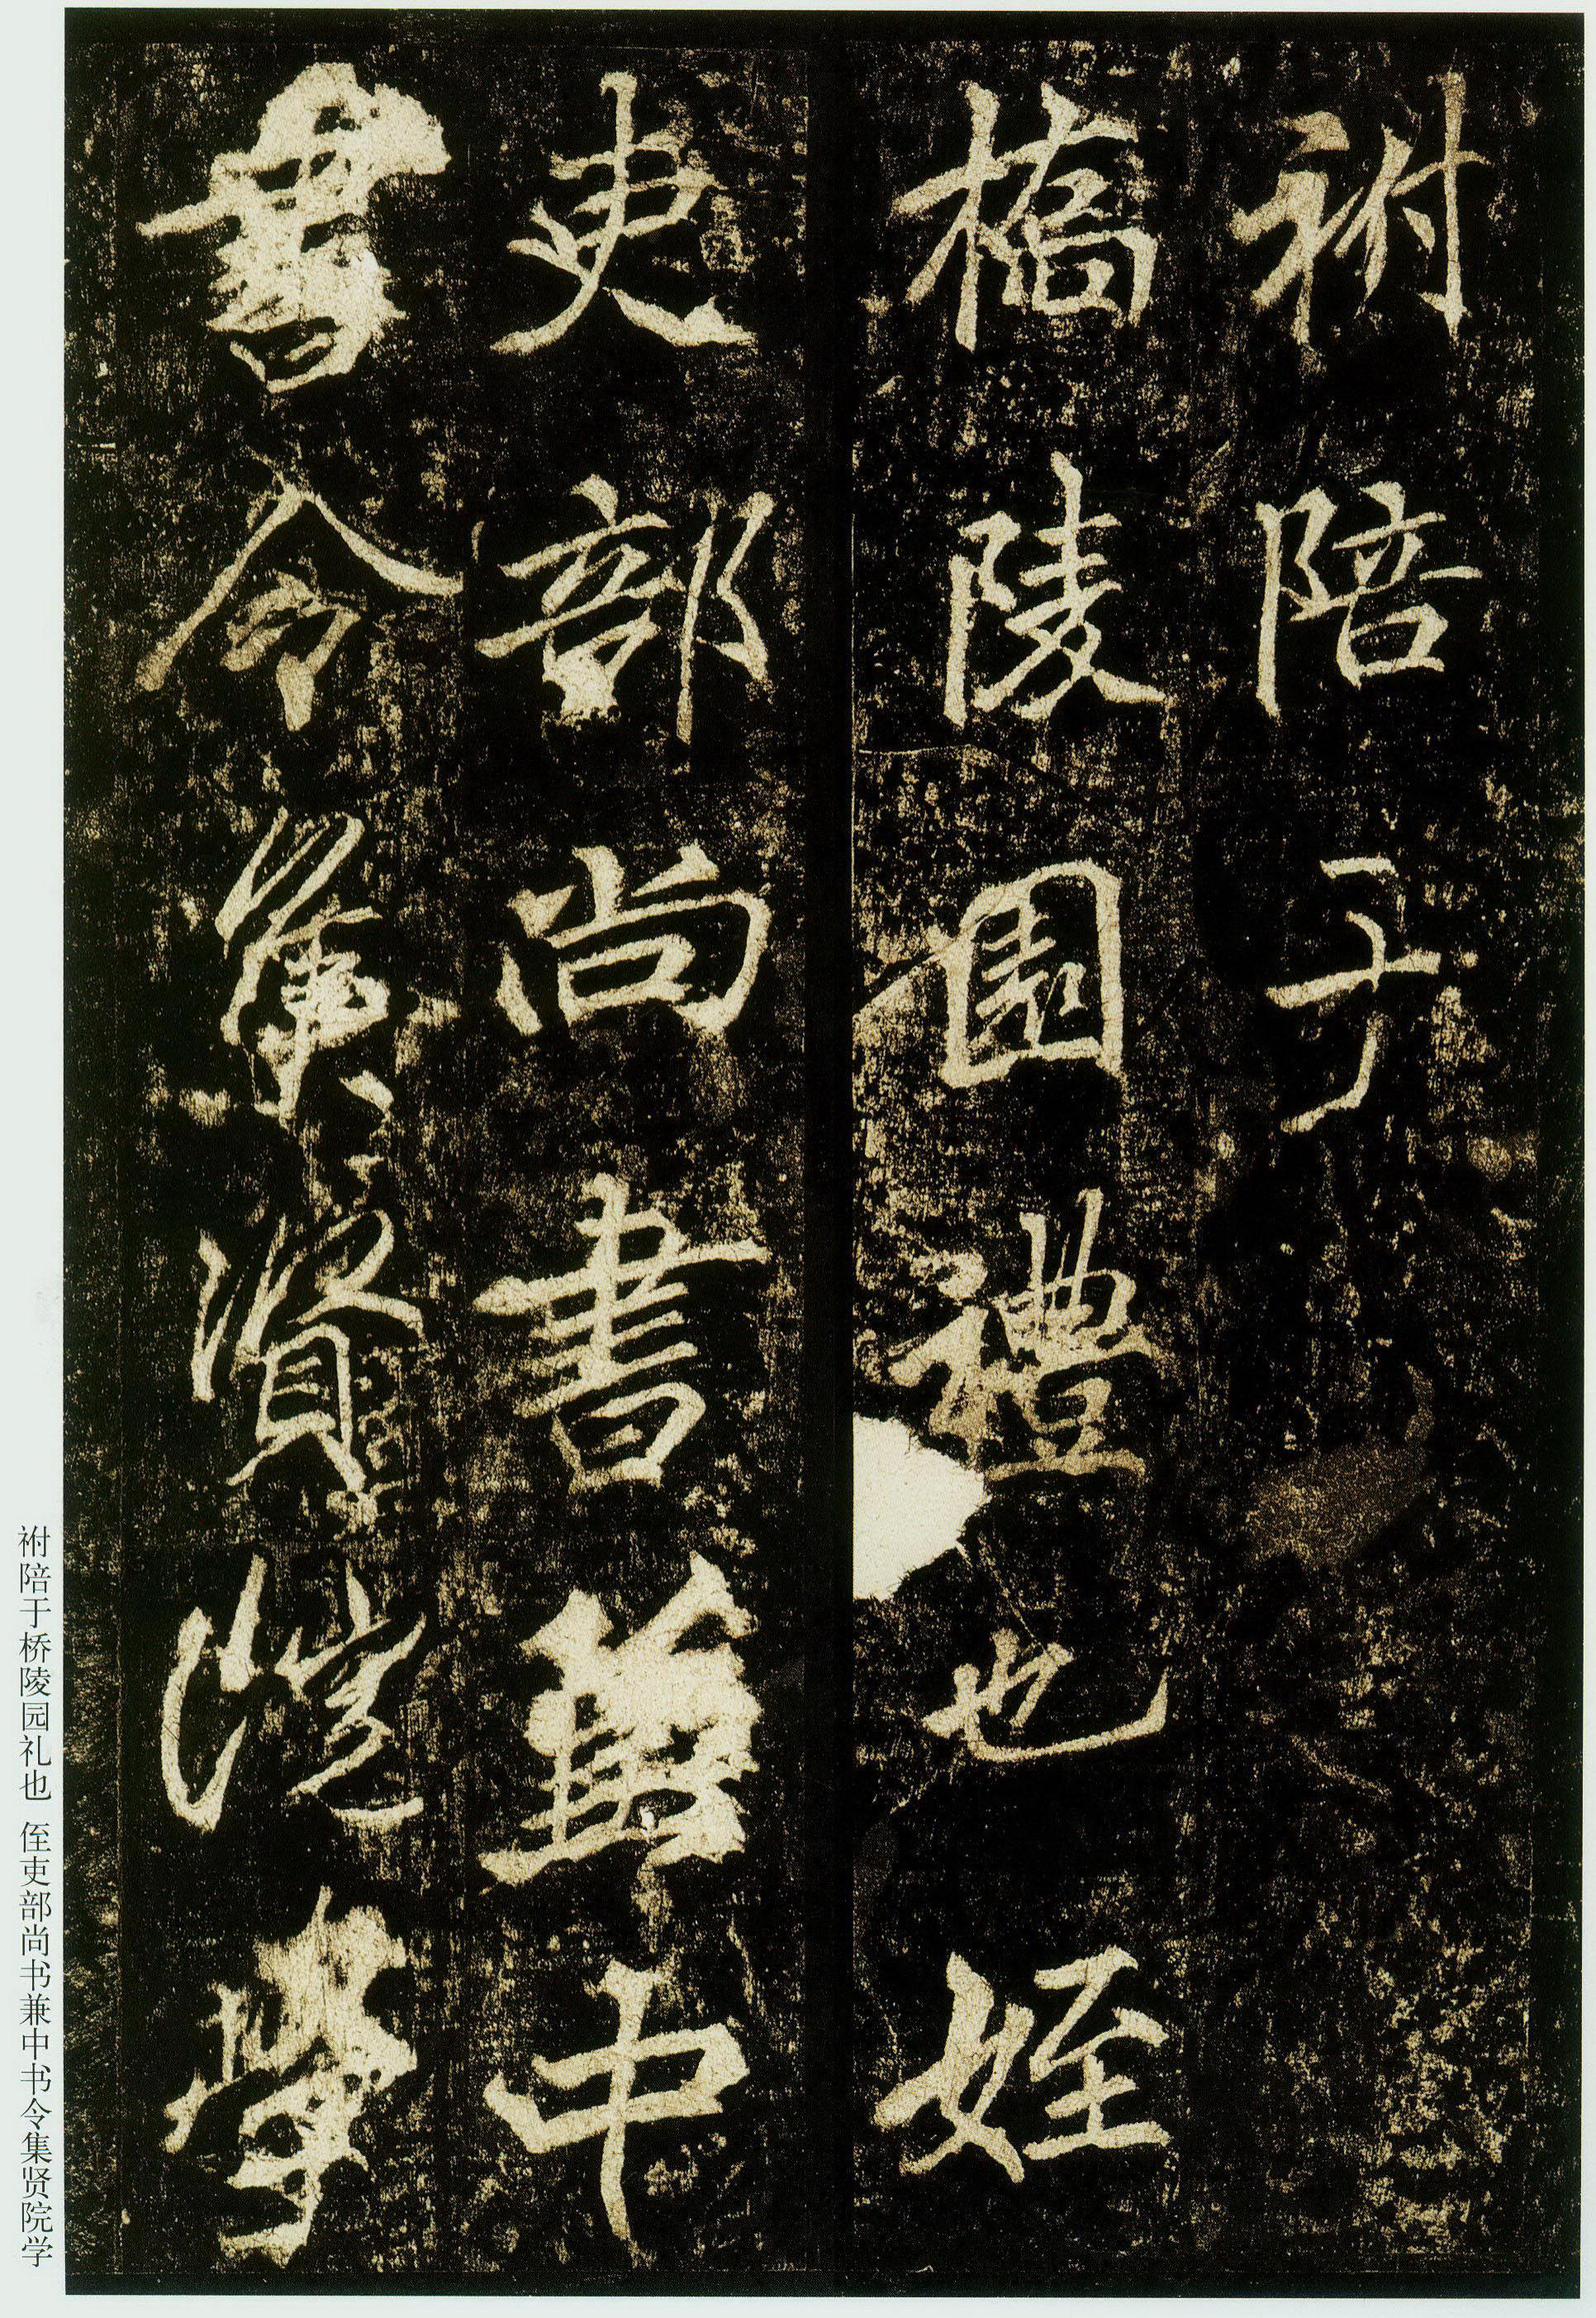 祔陪于
橋陵園禮也姪
吏部尚書兼中
書令集賢院學
祔陪于桥陵园礼也 侄吏部尚书兼中书令集贤院学